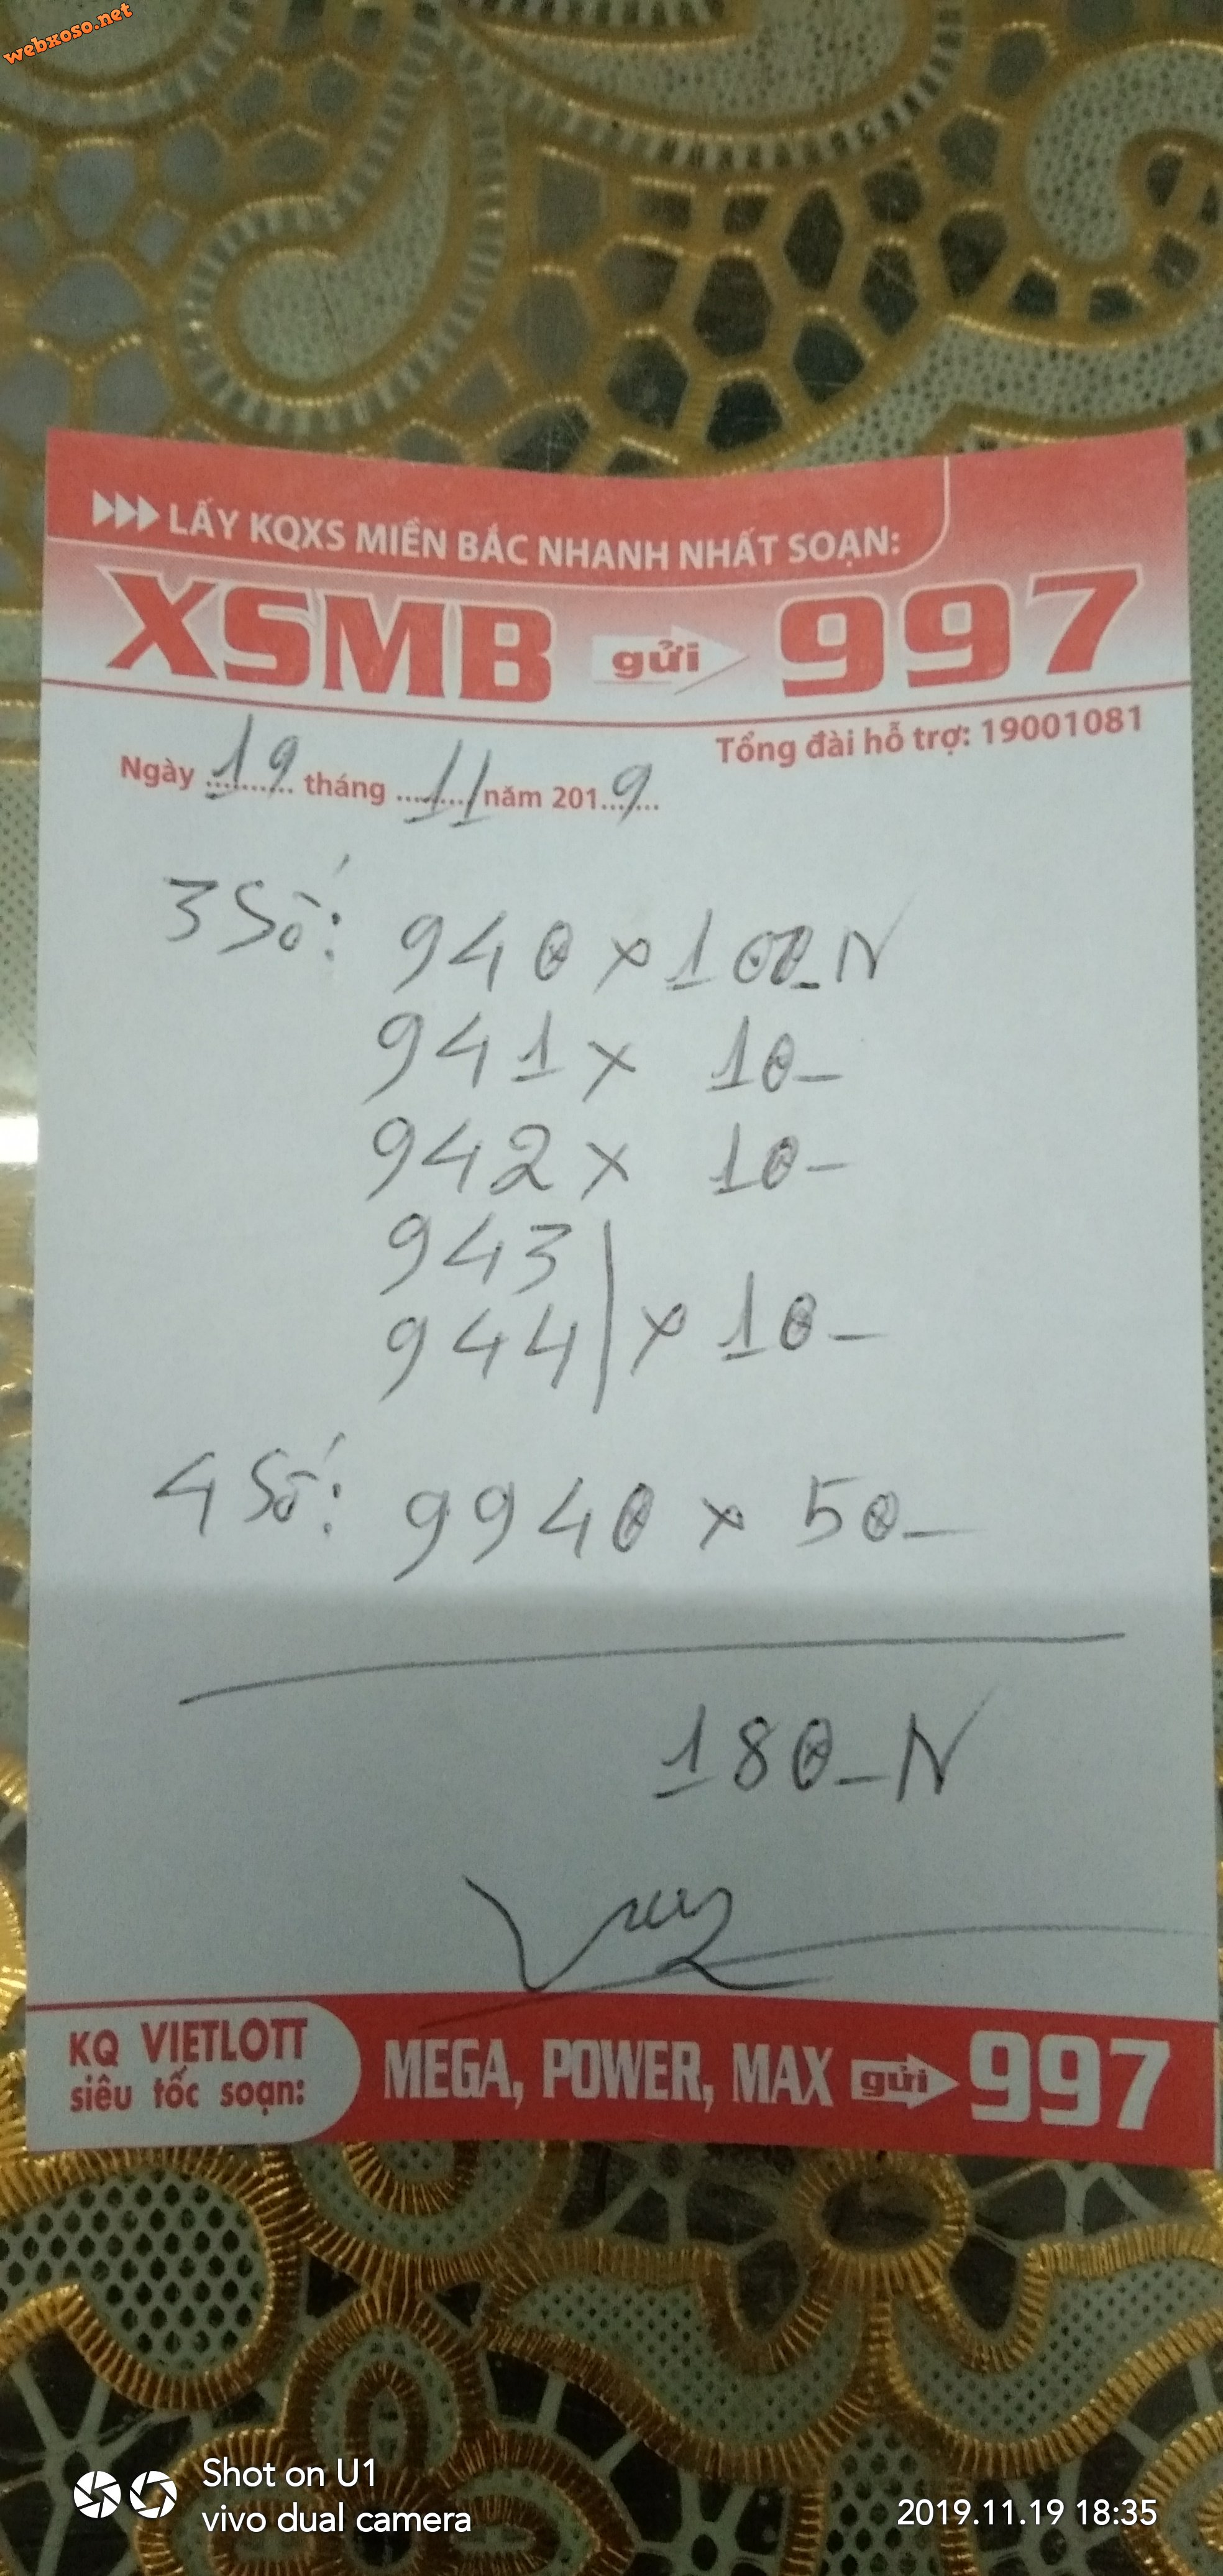 webxoso.net
LẤY KQXS MIỀN BẮC NHANH NHẤT SOẠN:
XSMB gửi 997
Tổng đài hỗ trợ: 19001081
Ngày 19 tháng 11 năm 2019
3 Số: 940 x 100_N
941 x 10_
942 x 10_
943
944 x 10_
4 Số: 9940 x 50_
180_N
KQ VIETLOTT
siêu tốc soạn:
MEGA, POWER, MAX gửi 997
Shot on U1
vivo dual camera
2019.11.19 18:35